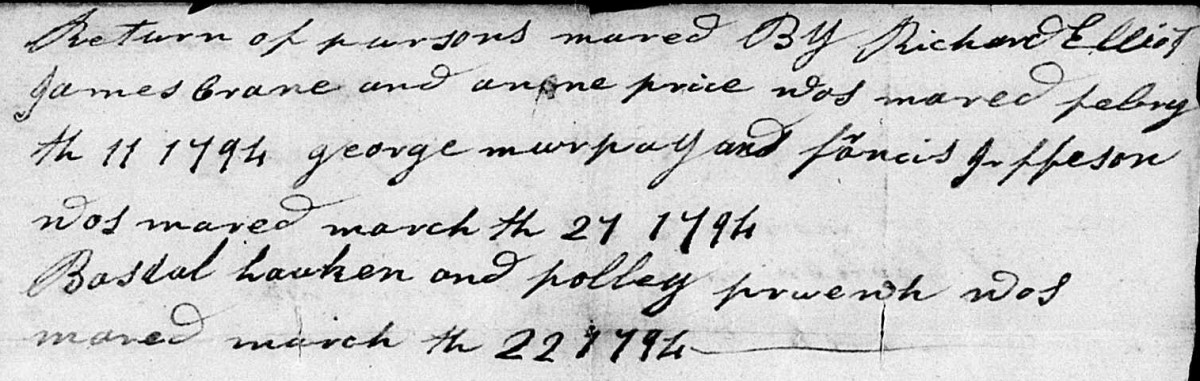 Return of pursons mared By Richard Elliot
James Crane and anone price wos mared febry
th 11 1794 george murpay and francis Jeffeson
wos mared march th 27 1794
Bastul hauken and polley pruewh wos
mared march th 22 1794